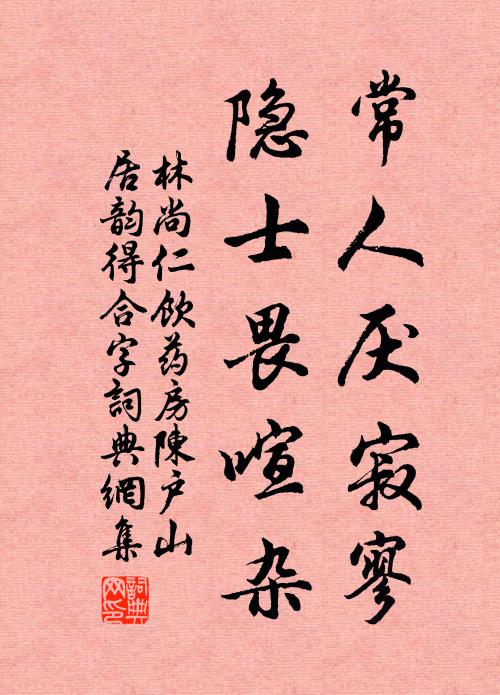 常人厌寂寥
隐士畏喧杂
林尚仁饮药房陳户山
居韵得合字詞典網集
詞典网印